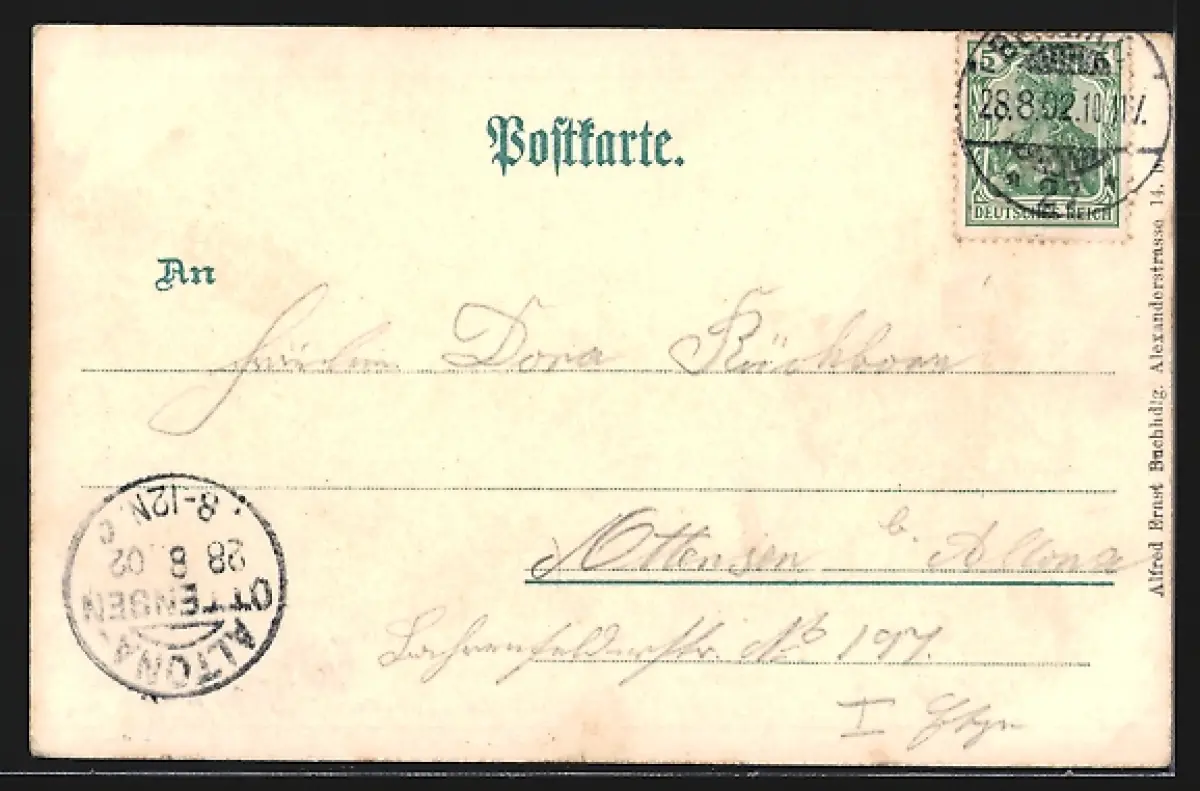 Postkarte.
5
28.8.02.10-11V.
27
DEUTSCHES REICH
An
Fräulein Dora Rückborn
Ottensen b. Altona
Bahrenfelderstr. No 197.
I Etg.
8-12N.
28 8 02
ALTONA
OTTENSEN
Alfred Ernst Buchhdlg. Alexanderstrasse 14.